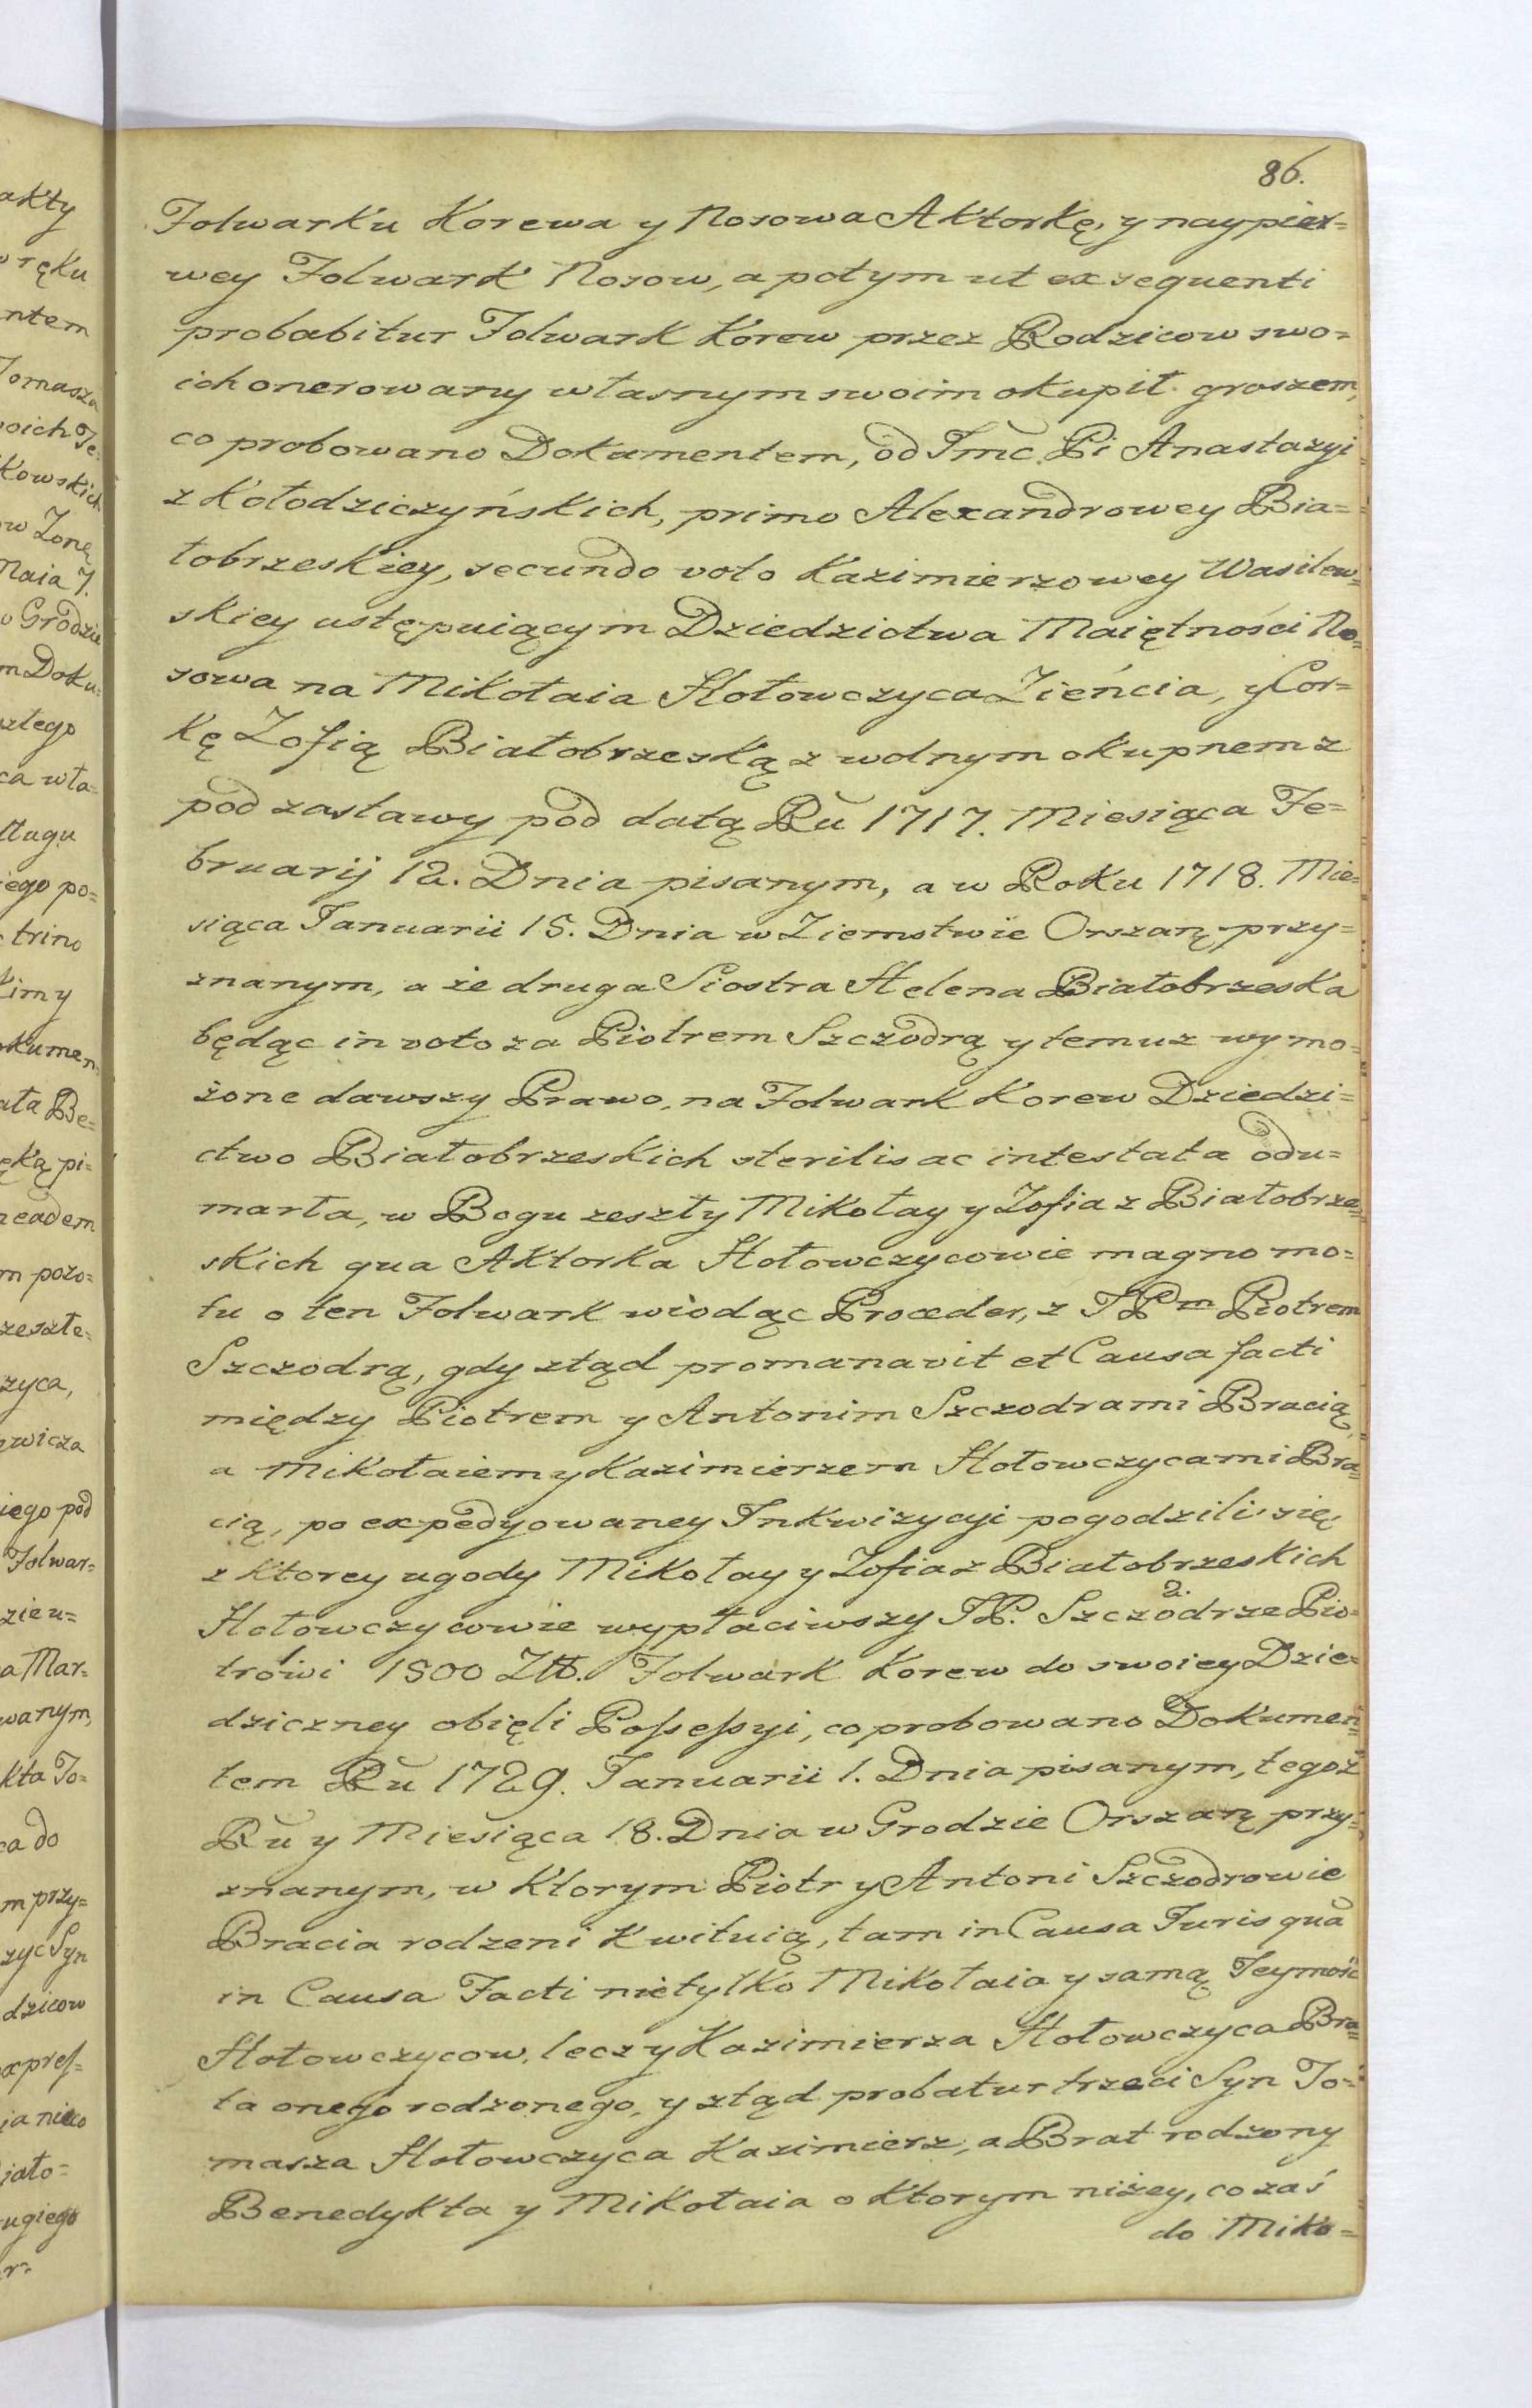 86.
Folwarku Korewa y Nosowa Aktorkę, y naypier=
wey Folwark Nosow, a potym ut ex sequenti
probabitur Folwark Korew przez Rodzicow swo=
ich onerowany własnym swoim okupił groszem,
co probowano Dokumentem, od Jmc. Pi Anastazyi
z Kołodziczyńskich, primo Alexandrowey Bia=
łobrzeskiey, secundo voto Kazimierzowey Wasilew=
skiey ustępuiącym Dziedzictwa Maiętności No=
sowa na Mikołaia Hołowczyca Zieńcia, y Cor=
kę Zofią Białobrzeską z wolnym okupnem z
pod zastawy pod datą Ru 1717. Miesiąca Fe=
bruarij 12. Dnia pisanym, a w Roku 1718. Mie=
siąca Januarii 15. Dnia w Ziemstwie Orszan: przy=
znanym, a że druga Siostra Helena Białobrzeska
będąc in voto za Piotrem Szczodrą y temuz wymo=
żone dawszy Prawo, na Folwark Korew Dziedzi=
ctwo Białobrzeskich sterilis ac intestata odu=
marła, w Bogu zeszły Mikołay y Zofia z Białobrze=
skich qua Aktorka Hołowczycowie magno mo=
tu o ten Folwark wiodąc Proceder, z JPm Piotrem
Szczodrą, gdy ztąd promanavit et Causa facti
między Piotrem y Antonim Szczodrami Bracią,
a Mikołaiem y Kazimierzem Hołowczycami Bra=
cią, po expedyowaney Inkwizycyi pogodzili się
z ktorey ugody Mikołay y Zofia z Białobrzeskich
Hołowczycowie wypłaciwszy JP. Szczodrze Pio=
trowi 1500 Zł. Folwark Korew do swoiey Dzie=
dziczney obięli Possessyi, co probowano Dokumen=
tem Ru 1729. Januarii 1. Dnia pisanym, tegoż
Ru y Miesiąca 18. Dnia w Grodzie Orszan: przy=
znanym, w ktorym Piotr y Antoni Szczodrowie
Bracia rodzeni kwituią, tam in Causa Juris qua
in Causa Facti nietylko Mikołaia y samą Jeymość
Hołowczycow, lecz y Kazimierza Hołowczyca Bra=
ta onego rodzonego, y ztąd probatur trzeci Syn To=
masza Hołowczyca Kazimierz, a Brat rodzony
Benedykta y Mikołaia o ktorym niżey, co zaś
do Miko=